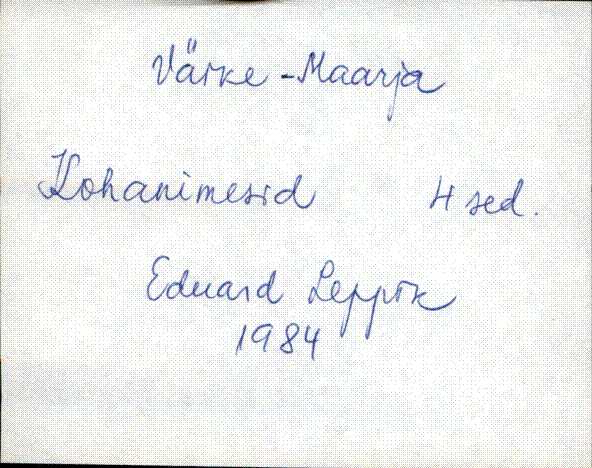 Väike-Maarja
Kohanimesid 4 sed.
Eduard Leppik
1984